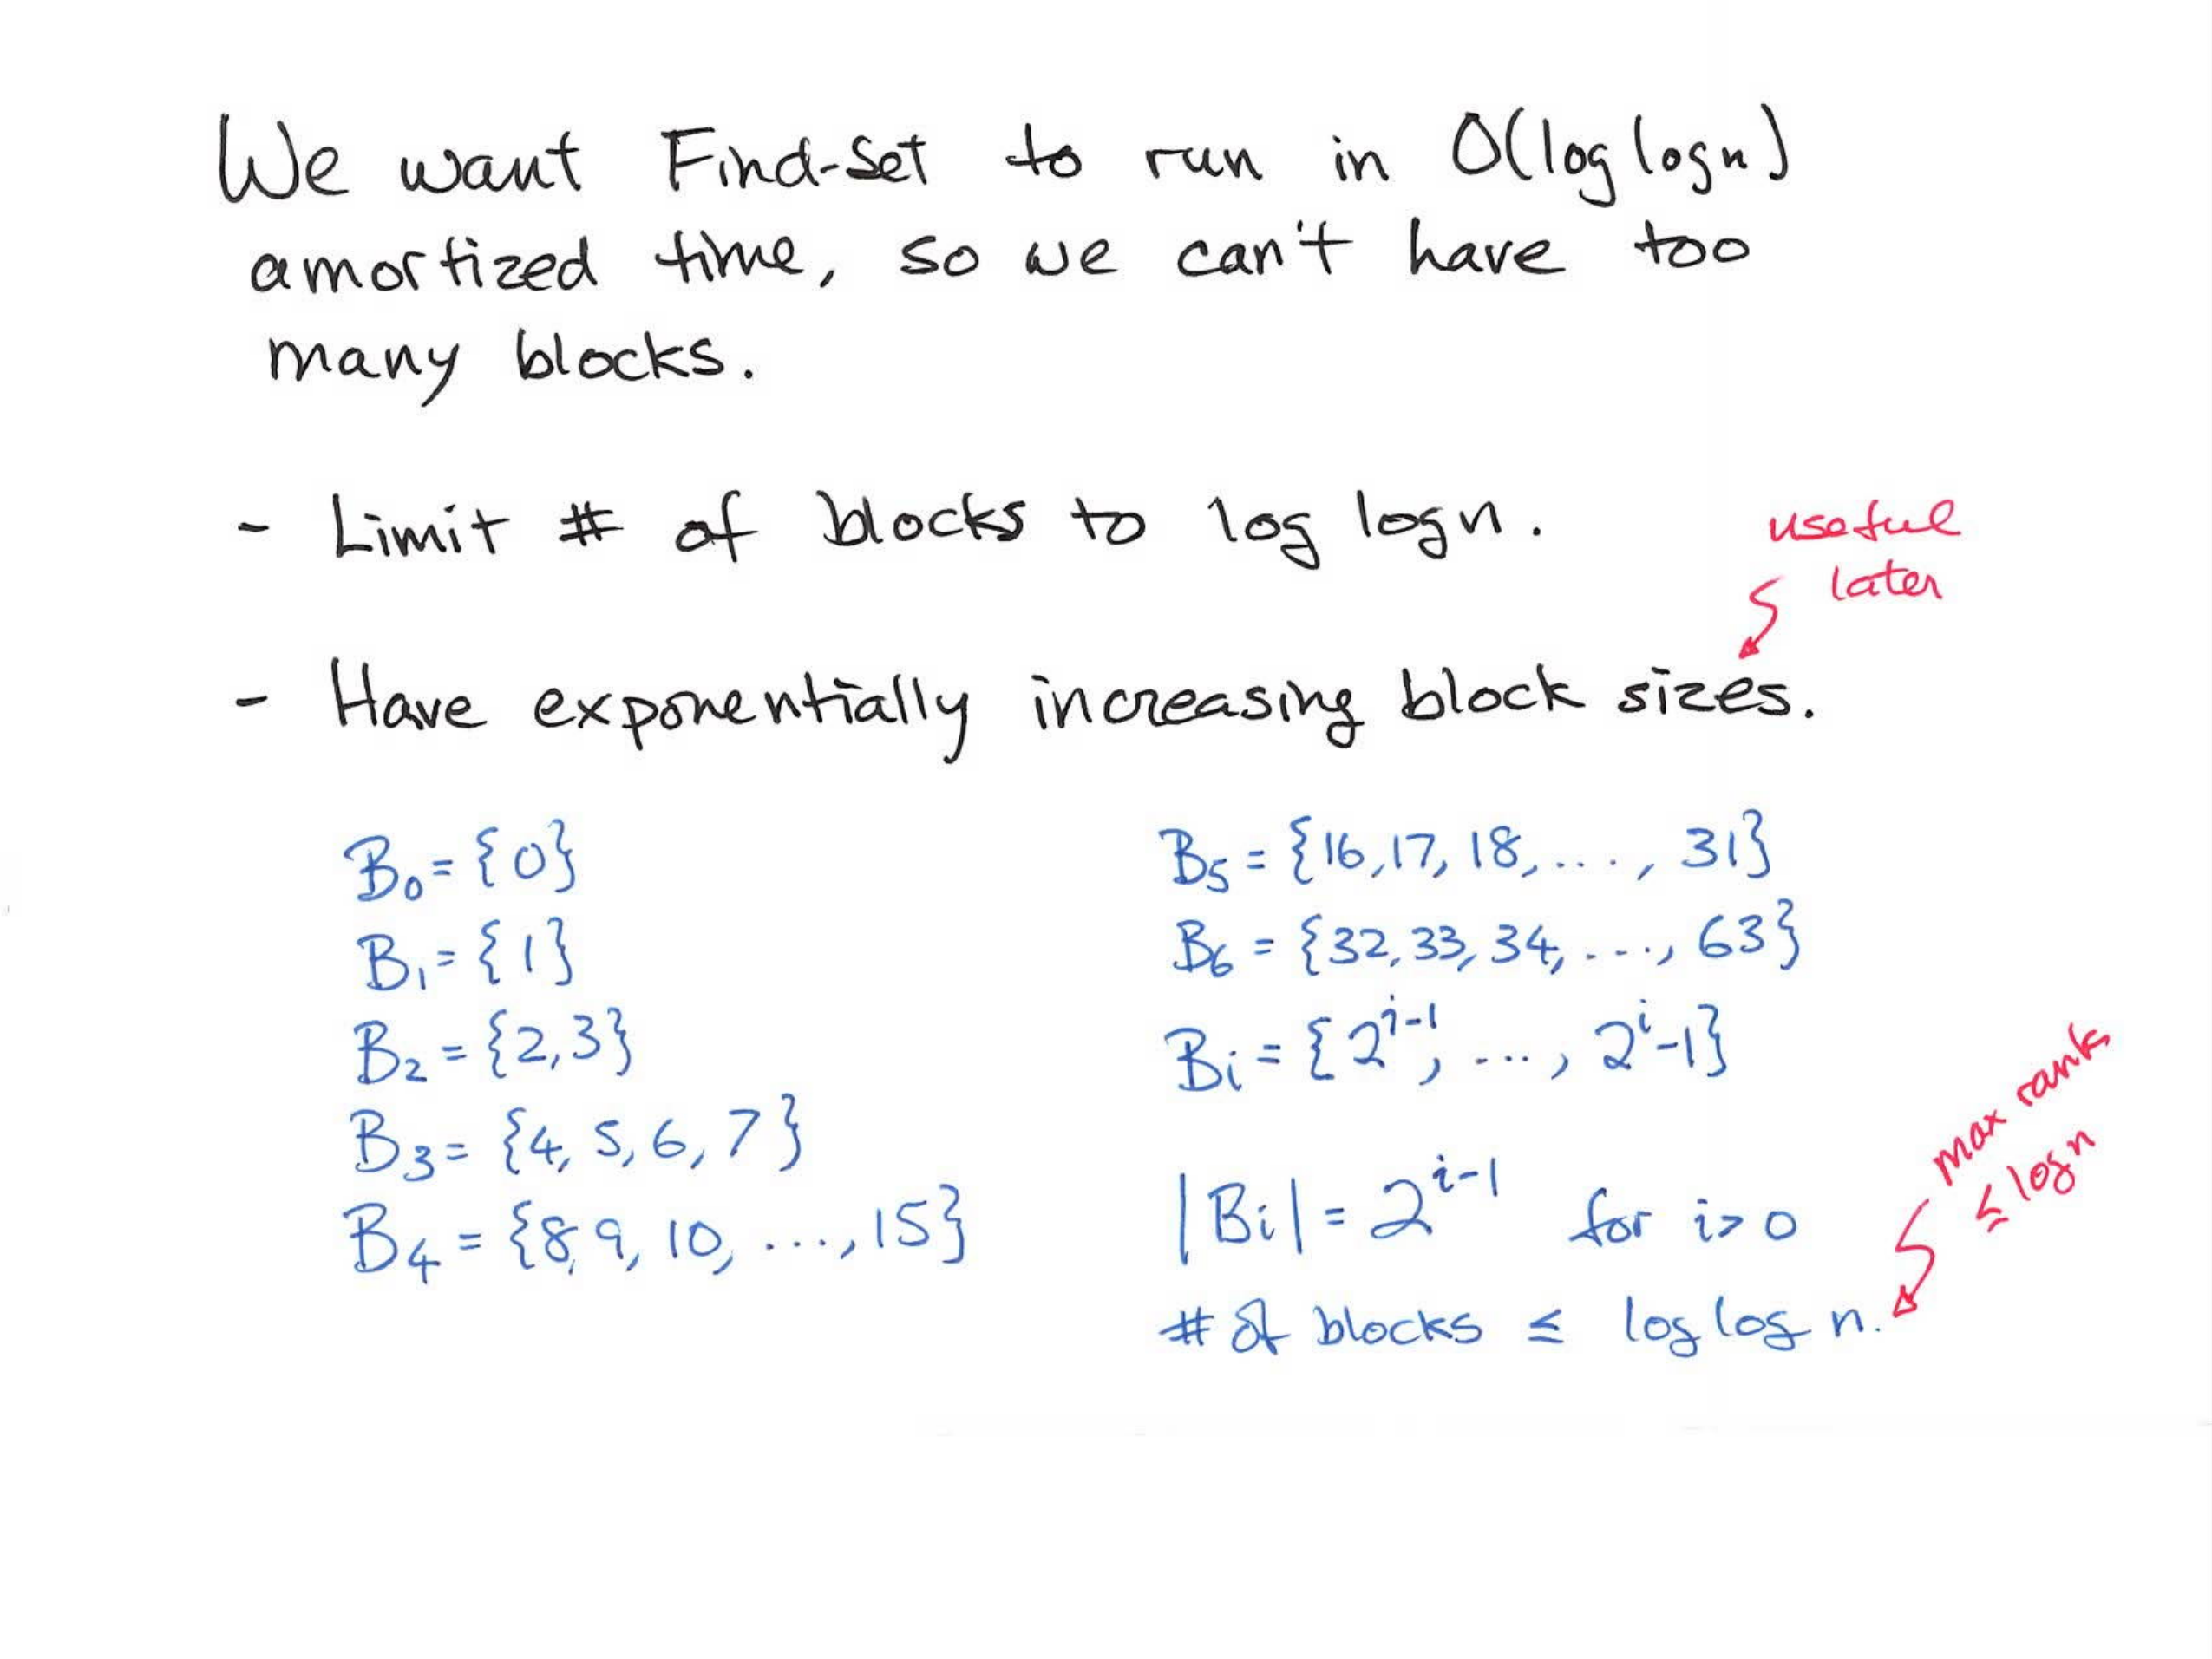 We want Find-Set to run in O(log log n)
amortized time, so we can't have too
many blocks.
- Limit # of blocks to log log n.
useful
later
- Have exponentially increasing block sizes.
B₀ = {0}
B₁ = {1}
B₂ = {2,3}
B₃ = {4, 5, 6, 7}
B₄ = {8, 9, 10, ..., 15}
B₅ = {16, 17, 18, ...., 31}
B₆ = {32, 33, 34, ..., 63}
Bᵢ = {2^{i-1}, ..., 2^i-1}
|Bᵢ| = 2^{i-1} for i > 0
max rank
≤ log n
# of blocks ≤ log log n.